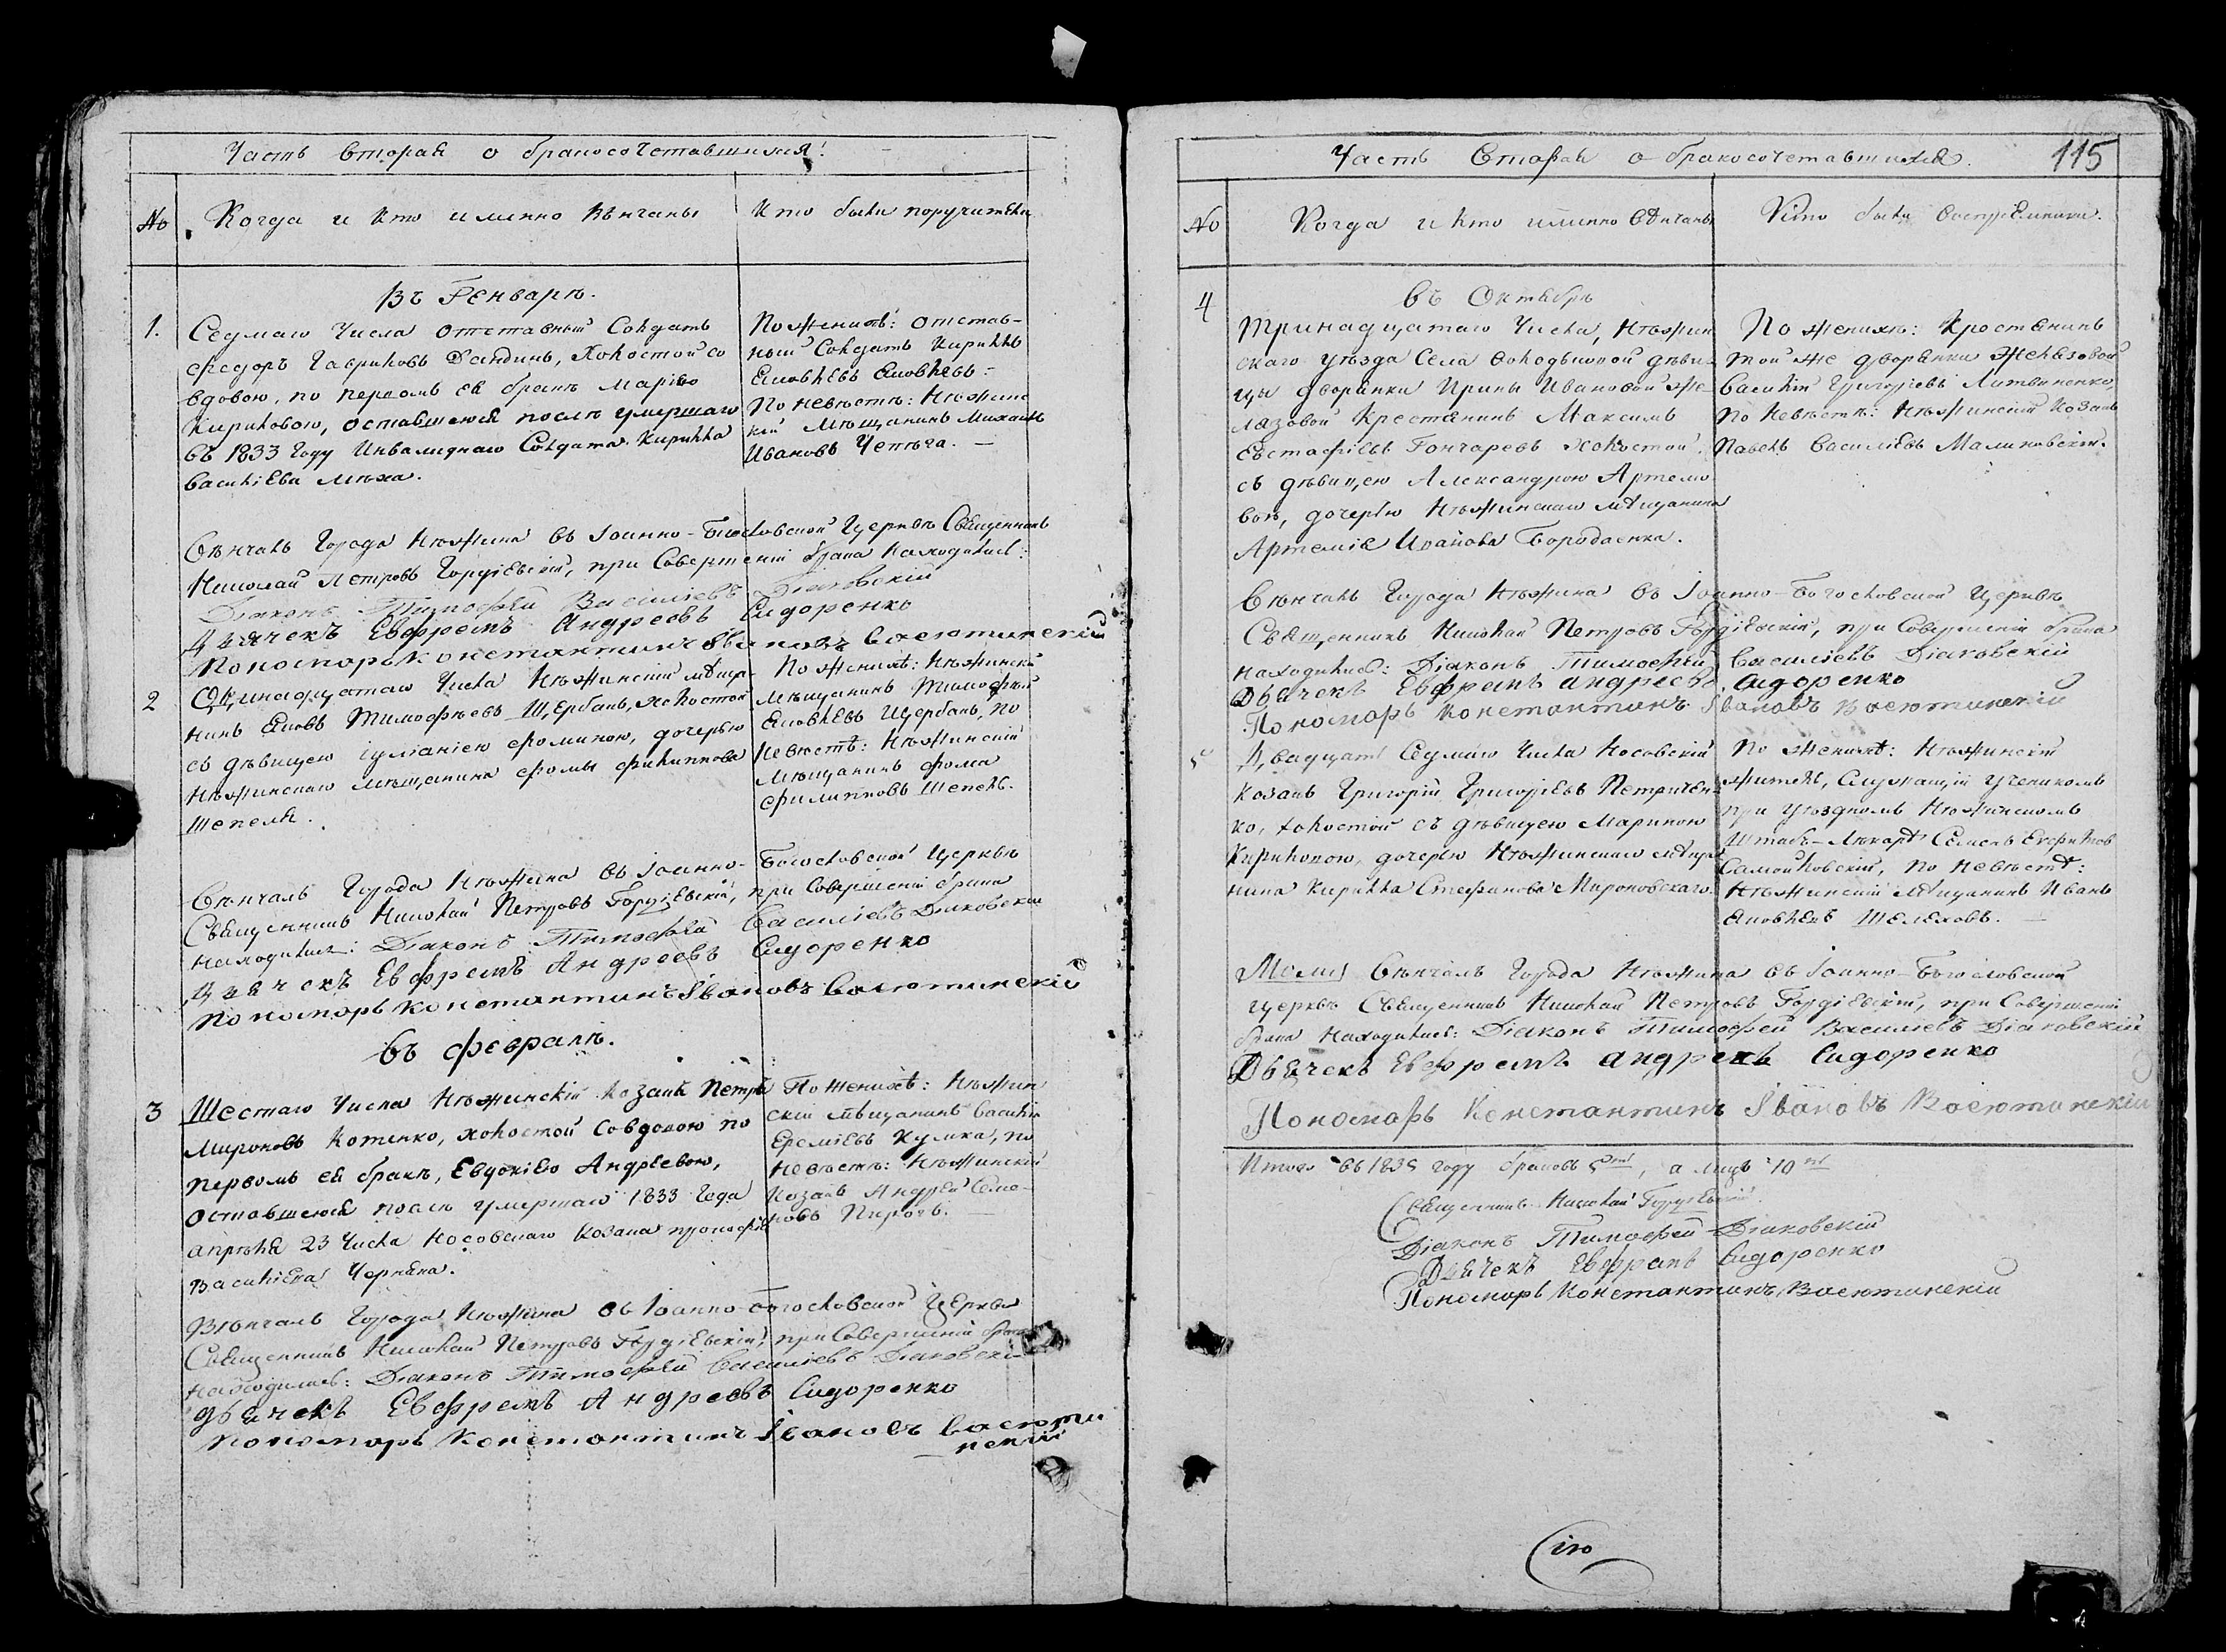 Часть вторая о бракосочетавшихся:
№
Когда и кто именно вѣнчаны
Кто были поручители
Въ Генварѣ.
1.
Седмаго числа отставный Солдатъ
Федоръ Гавриловъ холостой со
вдовою, по первомъ ея бракѣ Маріею
Кириловою, оставшеюся послѣ умершаго
въ 1833 году Инвалиднаго Солдата Кирилла
Василіева мужа.
По женихѣ: отстав-
ный Солдатъ Кириллъ
Яковлевъ Яковлевъ
По невѣстѣ: Нѣжинс
кій Мѣщанинъ Михаилъ
Ивановъ Чепѣга. —
Вѣнчалъ Города Нѣжина въ Іоанно-Богословской Церквѣ Священникъ
Николай Петровъ Гордіевскій, при Совершеніи брака находились:
Діаконъ Тимофей Василіевъ Діаковскій
Дьячекъ Евфремъ Андреевъ Сидоренко
Пономарь Константинъ Ивановъ Васютинскій
2
Одинадцатаго Числа Нѣжинскій мѣща-
нинъ Яковъ Тимофѣевъ Щербакъ, холостой
съ дѣвицею Іуліаніею Фоминою, дочерью
Нѣжинскаго мѣщанина Фомы Филиппова
Шепеля.
По женихѣ: Нѣжинскій
мѣщанинъ Тимофей
Яковлевъ Щербакъ, по
невѣстѣ: Нѣжинскій
Мѣщанинъ Фома
Филипповъ Шепель.
Вѣнчалъ Города Нѣжина въ Іоанно-Богословской Церквѣ
Священникъ Николай Петровъ Гордіевскій, при Совершеніи брака
находились: Діаконъ Тимофей Василіевъ Діаковскій
Дьячекъ Евфремъ Андреевъ Сидоренко
Пономарь Константинъ Ивановъ Васютинскій
Въ Февралѣ.
3
Шестаго Числа Нѣжинскій козакъ Петръ
Мироновъ Котенко, холостой со вдовою по
первомъ ея бракѣ, Евдокіею Андреевою,
оставшеюся послѣ умершаго 1833 Года
Апрѣля 23 Числа Носовскаго Козака
Василіева Черняка.
По женихѣ: Нѣжин
скій мѣщанинъ Василій
Ереміевъ Кулжа, по
невѣстѣ: Нѣжинскій
Козакъ Андрей Семо-
новъ Пирогъ. —
Вѣнчалъ Города Нѣжина въ Іоанно-Богословской Церквѣ
Священникъ Николай Петровъ Гордіевскій, при Совершеніи брака
находились: Діаконъ Тимофей Василіевъ Діаковскій
Дьячекъ Евфремъ Андреевъ Сидоренко
Пономарь Константинъ Ивановъ Васюти
нскій
Часть Вторая о бракосочетавшихся.
115
№
Когда и кто именно вѣнчаны
Кто были воспріемники.
Въ Октябрѣ
4
Тринадцатаго Числа, Нѣжин
скаго уѣзда Села Володьковой дѣви-
цы дворянки Ирины Ивановой Же-
лѣзовой Крестянинъ Максимъ
Евстафіевъ Гончаревъ холостой.
съ дѣвицею Александрою Артемо
вою, дочерію Нѣжинскаго мѣщанина
Артемія Иванова Бородаенка.
По женихѣ: Крестянинъ
той же дворянки Желѣзовой
Василій Григоріевъ Литвиненко,
по невѣстѣ: Нѣжинскій Козакъ
Павелъ Василіевъ Малиновскій.
Вѣнчалъ Города Нѣжина въ Іоанно-Богословской Церквѣ
Священникъ Николай Петровъ Гордіевскій, при Совершеніи брака
находились: Діаконъ Тимофей Василіевъ Діаковскій
Дьячекъ Евфремъ Андреевъ Сидоренко
Пономарь Константинъ Ивановъ Васютинскій
5
Двадцать Седмаго Числа Носовскій
Козакъ Григорій Григоріевъ Петричен
ко, холостой съ дѣвицею Мариною
Кириловою, дочерію Нѣжинскаго мѣща
нина Кирилла Стефанова Мироновскаго.
По женихѣ: Нѣжинскій
житель, Служащій ученикомъ
при уѣздномъ Нѣжинскомъ
Штабъ-Лѣкарѣ Семенъ
Самойловскій, по невѣстѣ:
Нѣжинскій мѣщанинъ Иванъ
Яковлевъ Шелеховъ. —
Вѣнчалъ Города Нѣжина въ Іоанно-Богословской
Церквѣ Священникъ Николай Петровъ Гордіевскій, при Совершеніи
брака находились: Діаконъ Тимофей Василіевъ Діаковскій
Дьячекъ Евфремъ Андреевъ Сидоренко
Пономарь Константинъ Ивановъ Васютинскій
Итого въ 1835 году браковъ 5ть, а лицъ 10ть
Священникъ Николай Гордіевскій.
Діаконъ Тимофей Діаковскій
Дьячекъ Евфремъ Сидоренко
Пономарь Константинъ Васютинскій